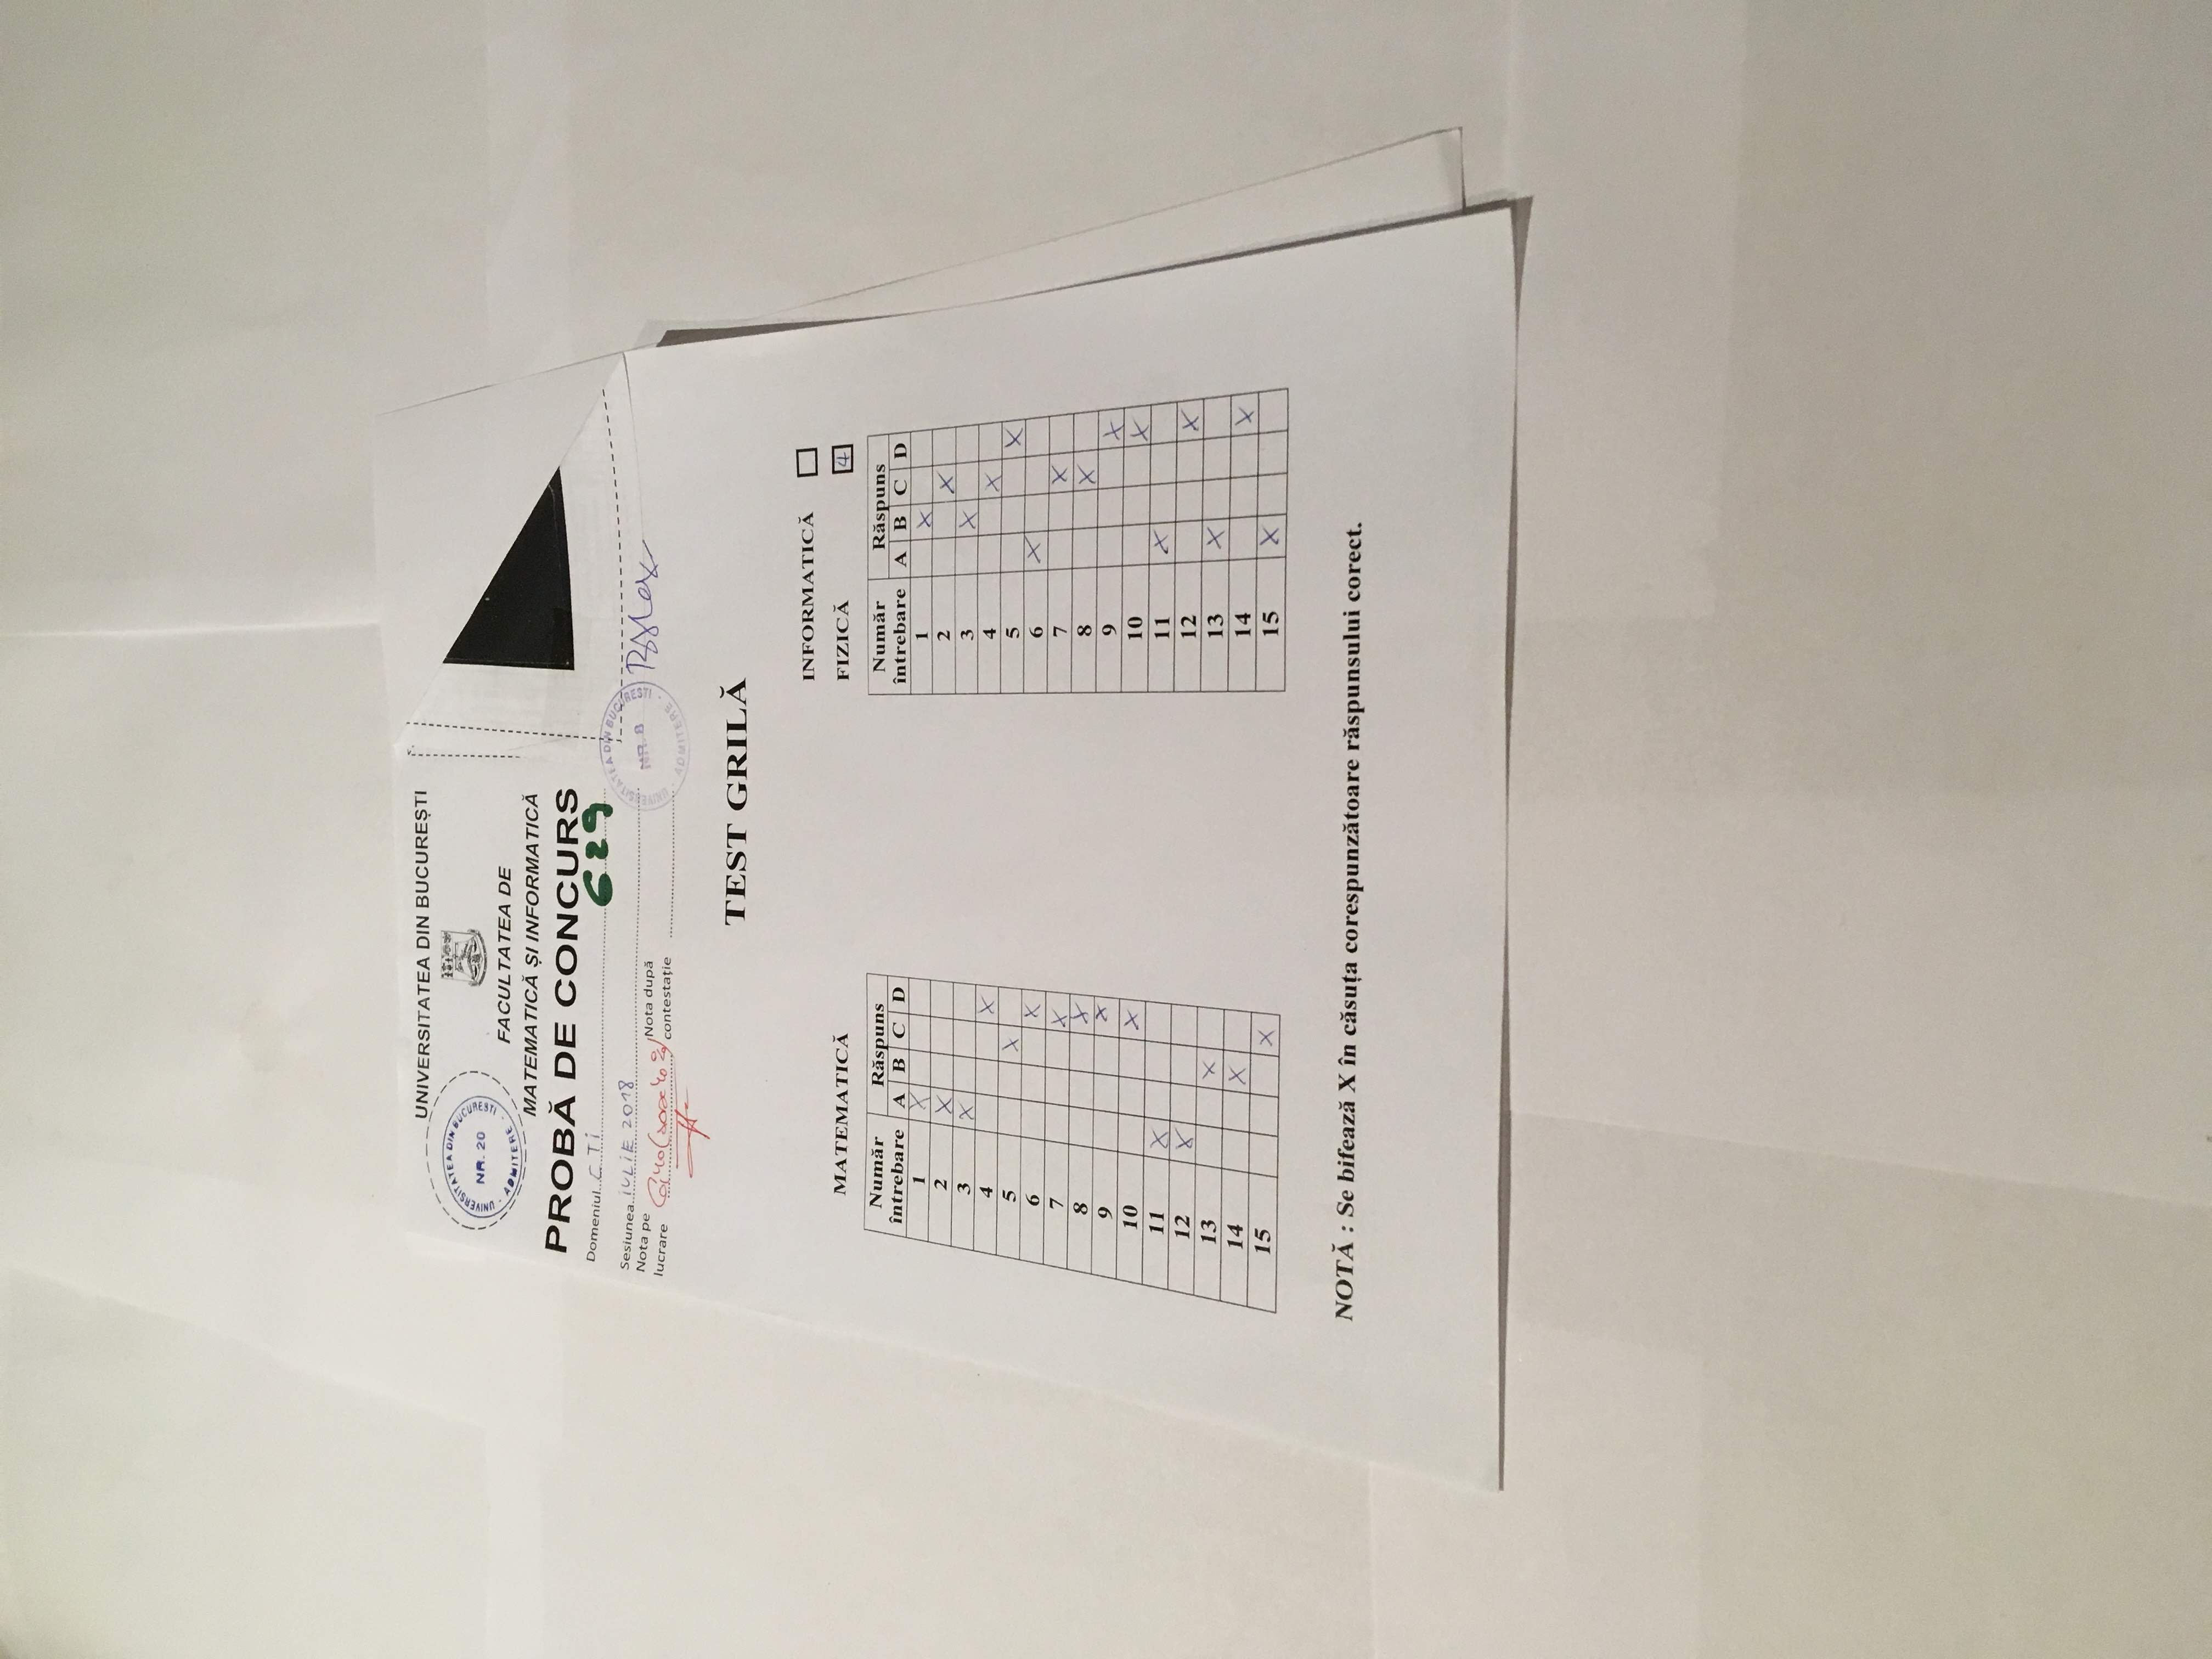 UNIVERSITATEA DIN BUCUREȘTI
UNIVERSITATEA DIN BUCURESTI
NR. 20
- ADMITERE -
FACULTATEA DE
MATEMATICĂ ȘI INFORMATICĂ
PROBĂ DE CONCURS
Domeniul CTi 629
Sesiunea iULiE 2018
Nota pe lucrare 6,40 Nota după contestație
UNIVERSITATEA DIN BUCURESTI
NR. 8
- ADMITERE -
TEST GRILĂ
MATEMATICĂ
Număr întrebare Răspuns
A B C D
1 X
2 X
3 X
4 X
5 X
6 X
7 X
8 X
9 X
10 X
11 X
12 X
13 X
14 X
15 X
INFORMATICĂ
FIZICĂ 4
Număr întrebare Răspuns
A B C D
1 X
2 X
3 X
4 X
5 X
6 X
7 X
8 X
9 X
10 X
11 X
12 X
13 X
14 X
15 X
NOTĂ : Se bifează X în căsuța corespunzătoare răspunsului corect.